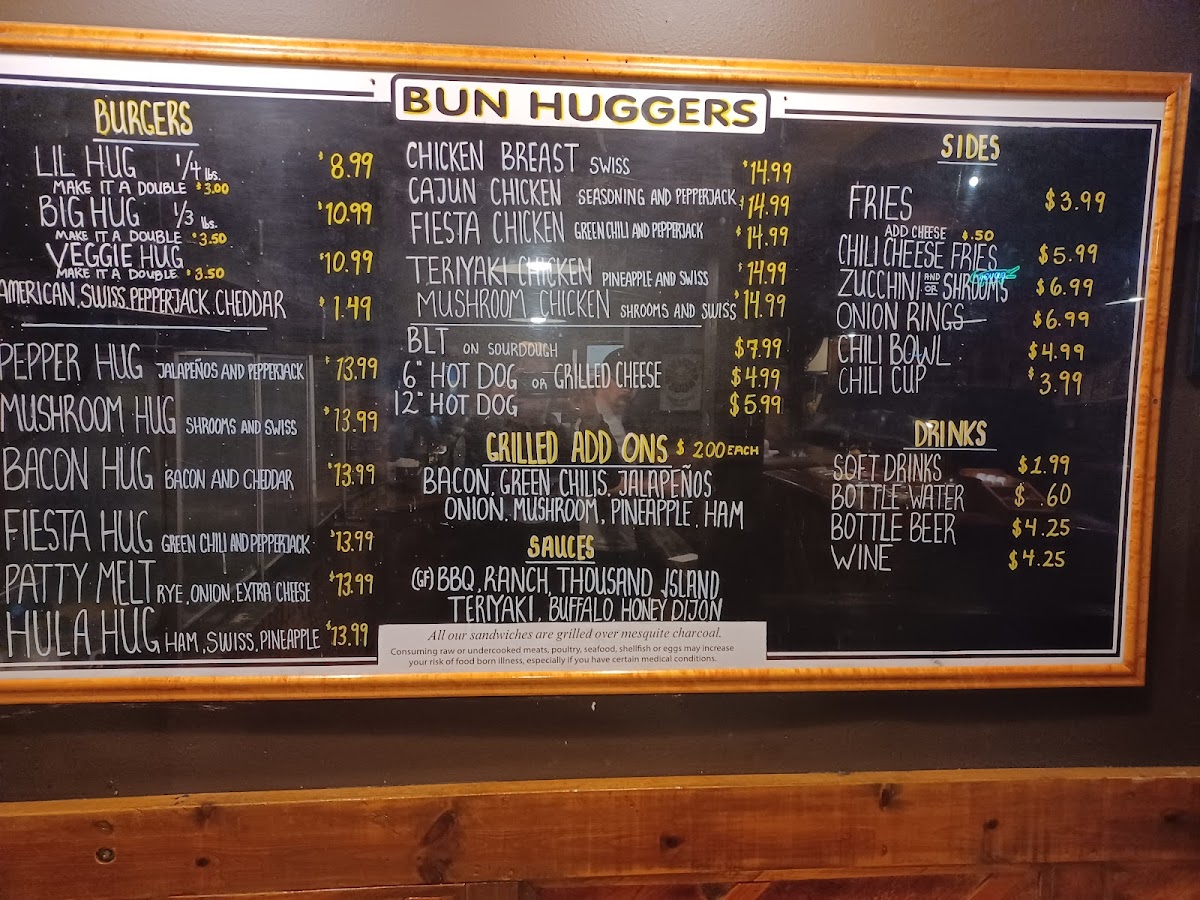 BUN HUGGERS
BURGERS
LIL HUG 1/4 lbs. $8.99
MAKE IT A DOUBLE $3.00
BIG HUG 1/3 lbs. $10.99
MAKE IT A DOUBLE $3.50
VEGGIE HUG $10.99
MAKE IT A DOUBLE $3.50
AMERICAN, SWISS, PEPPERJACK, CHEDDAR $1.49
PEPPER HUG JALAPEÑOS AND PEPPERJACK $13.99
MUSHROOM HUG SHROOMS AND SWISS $13.99
BACON HUG BACON AND CHEDDAR $13.99
FIESTA HUG GREEN CHILI AND PEPPERJACK $13.99
PATTY MELT RYE, ONION, EXTRA CHEESE $13.99
HULA HUG HAM, SWISS, PINEAPPLE $13.99
CHICKEN BREAST SWISS $14.99
CAJUN CHICKEN SEASONING AND PEPPERJACK $14.99
FIESTA CHICKEN GREEN CHILI AND PEPPERJACK $14.99
TERIYAKI CHICKEN PINEAPPLE AND SWISS $14.99
MUSHROOM CHICKEN SHROOMS AND SWISS $14.99
BLT ON SOURDOUGH $7.99
6" HOT DOG OR GRILLED CHEESE $4.99
12" HOT DOG $5.99
GRILLED ADD ONS $2.00 EACH
BACON, GREEN CHILIS, JALAPEÑOS
ONION, MUSHROOM, PINEAPPLE, HAM
SAUCES
(GF) BBQ, RANCH, THOUSAND ISLAND
TERIYAKI, BUFFALO, HONEY DIJON
All our sandwiches are grilled over mesquite charcoal.
Consuming raw or undercooked meats, poultry, seafood, shellfish or eggs may increase
your risk of food born illness, especially if you have certain medical conditions.
SIDES
FRIES $3.99
ADD CHEESE $.50
CHILI CHEESE FRIES $5.99
ZUCCHINI AND OR SHROOMS $6.99
ONION RINGS $6.99
CHILI BOWL $4.99
CHILI CUP $3.99
DRINKS
SOFT DRINKS $1.99
BOTTLE WATER $.60
BOTTLE BEER $4.25
WINE $4.25